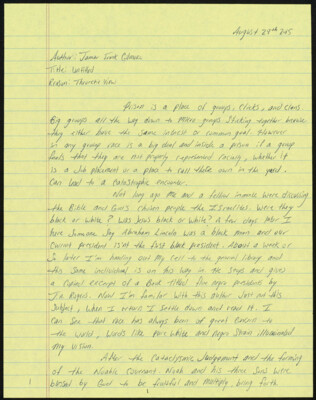 August 29th 205
Author: Jamar
Title: Untitled
Reason: Therevis View
Prison is a place of groups, Cliks, and clans.
Big groups all the way down to Micro groups Sticking together because
they either have the same interest or common goal. However
in any group race is a big deal and inside a prison if a group
feels that they are not properly represented racially, whether it
is a Job placement or a place to call there own in the yard.
Can lead to a catastrophic encounter.
Not long ago me and a fellow inmate were discussing
the Bible and God's chosen people the Israelites. Were they
black or white? Was Jesus black or White? A few days later I
have someone say Abraham Lincoln was a black man and our
Current president isn't the first black president. About a week or
so later I'm handing out my cell in the general library and
this same individual is on his way in he stops and gives
a copied excerpt of a Book titled Five negro presidents by
Ja Rogers. Now I'm familiar with this author Just not this
Subject, when I return I settle down and read it. I
can see that race has always been of great concern to
the world, Words like Pure White and Negro Strain illuminated
my vision.
After the Cataclysmic Judgement and the forming
of the Noahic Covenant Noah and his three Sons were
blessed by God to be fruitful and multiply bring forth
1